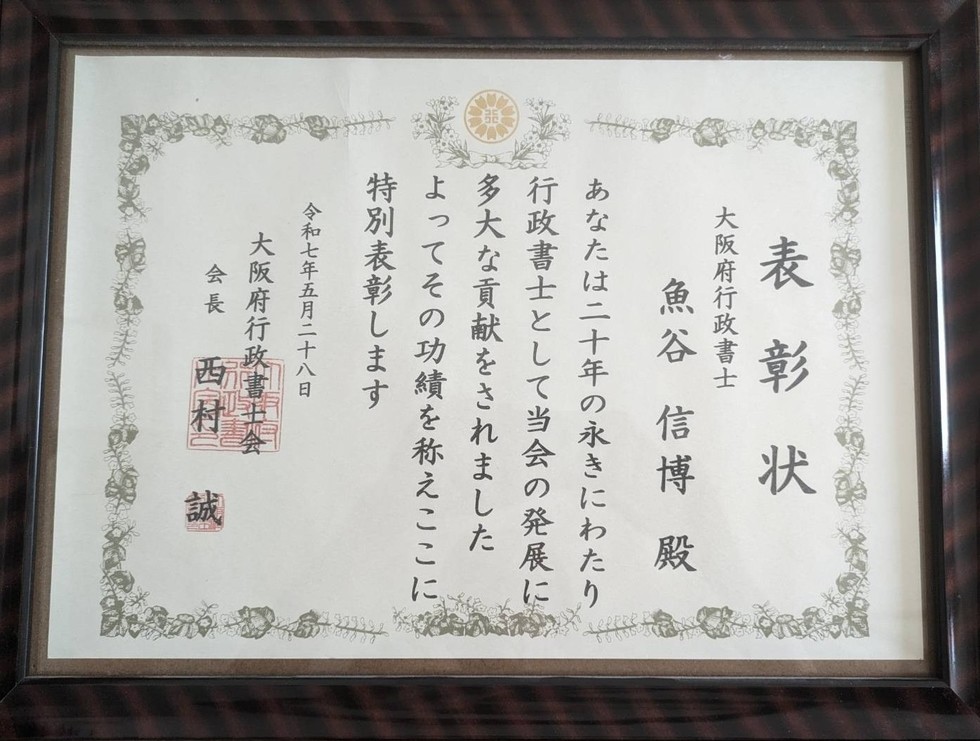 表彰状
大阪府行政書士
魚谷信博殿
あなたは二十年の永きにわたり
行政書士として当会の発展に
多大な貢献をされました
よってその功績を称えここに
特別表彰します
令和七年五月二十八日
大阪府行政書士会
会長
西村誠